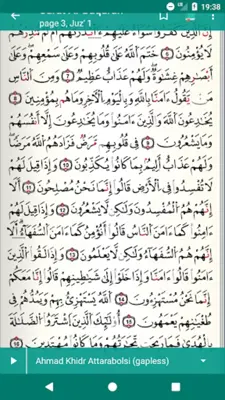 19:38
page 3, Juz' 1
لَا يُؤْمِنُونَ ٦ خَتَمَ ٱللَّهُ عَلَىٰ قُلُوبِهِمْ وَعَلَىٰ سَمْعِهِمْ وَعَلَىٰٓ
أَبْصَٰرِهِمْ غِشَٰوَةٌ وَلَهُمْ عَذَابٌ عَظِيمٌ ٧ وَمِنَ ٱلنَّاسِ
مَن يَقُولُ ءَامَنَّا بِٱللَّهِ وَبِٱلْيَوْمِ ٱلْءَاخِرِ وَمَا هُم بِمُؤْمِنِينَ ٨
يُخَٰدِعُونَ ٱللَّهَ وَٱلَّذِينَ ءَامَنُوا۟ وَمَا يَخْدَعُونَ إِلَّآ أَنفُسَهُمْ
وَمَا يَشْعُرُونَ ٩ فِى قُلُوبِهِم مَّرَضٌ فَزَادَهُمُ ٱللَّهُ مَرَضًا
وَلَهُمْ عَذَابٌ أَلِيمٌۢ بِمَا كَانُوا۟ يَكْذِبُونَ ١٠ وَإِذَا قِيلَ لَهُمْ
لَا تُفْسِدُوا۟ فِى ٱلْأَرْضِ قَالُوٓا۟ إِنَّمَا نَحْنُ مُصْلِحُونَ ١١
أَلَآ إِنَّهُمْ هُمُ ٱلْمُفْسِدُونَ وَلَٰكِن لَّا يَشْعُرُونَ ١٢ وَإِذَا قِيلَ لَهُمْ
ءَامِنُوا۟ كَمَآ ءَامَنَ ٱلنَّاسُ قَالُوٓا۟ أَنُؤْمِنُ كَمَآ ءَامَنَ ٱلسُّفَهَآءُ أَلَآ
إِنَّهُمْ هُمُ ٱلسُّفَهَآءُ وَلَٰكِن لَّا يَعْلَمُونَ ١٣ وَإِذَا لَقُوا۟ ٱلَّذِينَ
ءَامَنُوا۟ قَالُوٓا۟ ءَامَنَّا وَإِذَا خَلَوْا۟ إِلَىٰ شَيَٰطِينِهِمْ قَالُوٓا۟ إِنَّا مَعَكُمْ
إِنَّمَا نَحْنُ مُسْتَهْزِءُونَ ١٤ ٱللَّهُ يَسْتَهْزِئُ بِهِمْ وَيَمُدُّهُمْ فِى
طُغْيَٰنِهِمْ يَعْمَهُونَ ١٥ أُو۟لَٰٓئِكَ ٱلَّذِينَ ٱشْتَرَوُا۟ ٱلضَّلَٰلَةَ
Ahmad Khidr Attarabolsi (gapless)